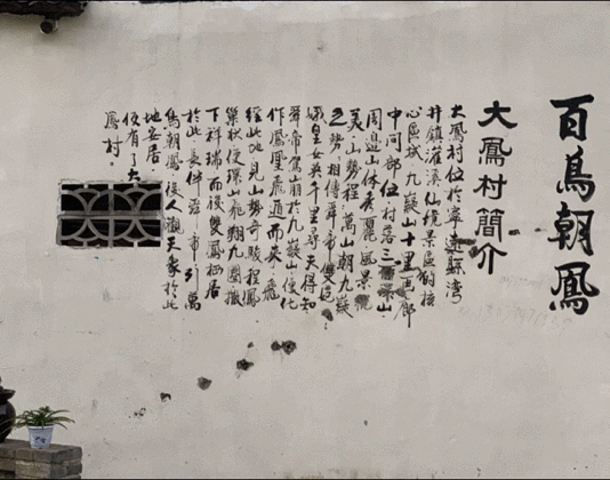 百鳥朝鳳
大鳳村簡介
大鳳村位於寧遠縣灣
井鎮灌溪仙境景區的核
心區域，九嶷山十里画廊
中间部位，村落三面環山，
周边山体秀麗，風景優
美，山势程萬山朝九嶷
之势，相傳舜帝雙妃
娥皇女英千里尋夫得知
舜帝駕崩於九嶷山便化
作鳳凰飛遁而来，飛
經此地見山势奇駿程鳳
巢狀便環山飛翔九圈撒
下祥瑞而後雙鳳栖居
於此，長伴舜帝引萬
鳥朝鳳，後人觀天象於此
地安居
便有了大
鳳村。